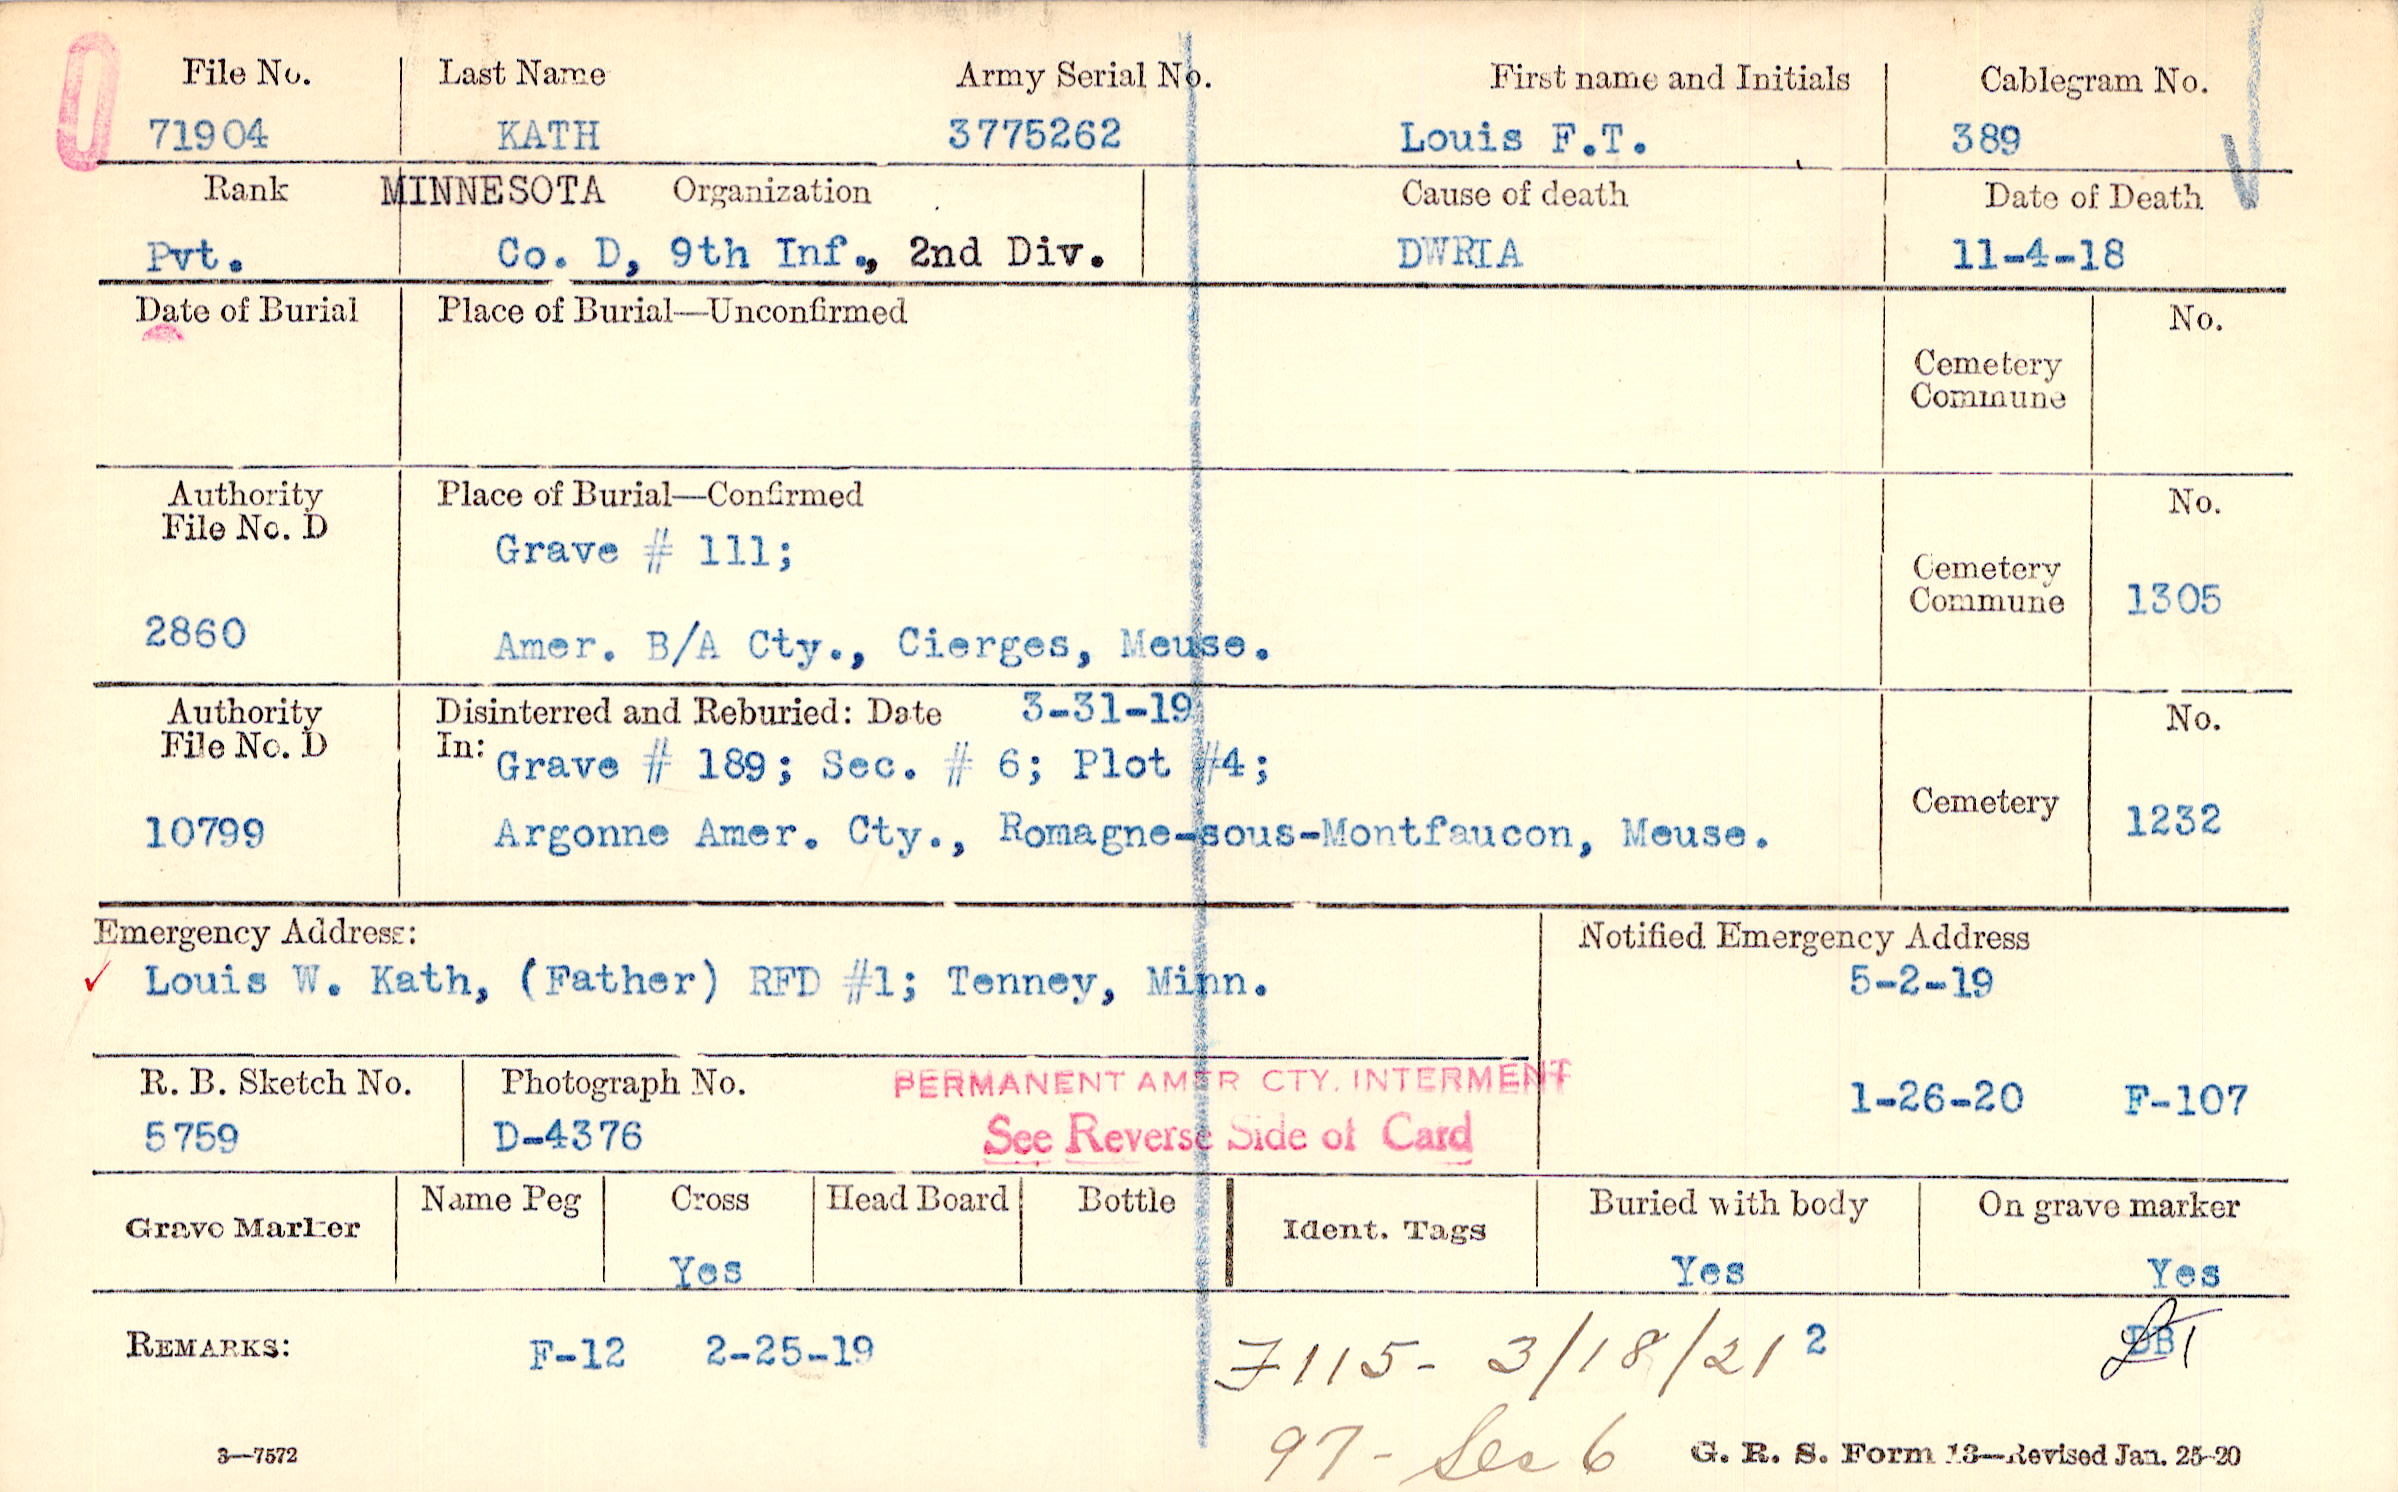 File No. Last Name Army Serial No. First name and Initials Cablegram No.
71904 KATH 3775262 Louis F.T. 389
Rank MINNESOTA Organization Cause of death Date of Death
Pvt. Co. D, 9th Inf., 2nd Div. DWRIA 11-4-18
Date of Burial Place of Burial—Unconfirmed No.
Cemetery
Commune
Authority Place of Burial—Confirmed No.
File No. D
Grave # 111;
Cemetery
Commune 1305
2860 Amer. B/A Cty., Cierges, Meuse.
Authority Disinterred and Reburied: Date 3-31-19 No.
File No. D In: Grave # 189; Sec. # 6; Plot #4;
Cemetery
10799 Argonne Amer. Cty., Romagne-sous-Montfaucon, Meuse. 1232
Emergency Address: Notified Emergency Address
Louis W. Kath, (Father) RFD #1; Tenney, Minn. 5-2-19
R. B. Sketch No. Photograph No. PERMANENT AMER CTY. INTERMENT 1-26-20 F-107
5759 D-4376 See Reverse Side of Card
Grave Marker Name Peg Cross Head Board Bottle Ident. Tags Buried with body On grave marker
Yes Yes Yes
REMARKS: F-12 2-25-19 F115- 3/18/21 2 DB
97 - Sec 6
3—7572 G. R. S. Form 13—Revised Jan. 25-20